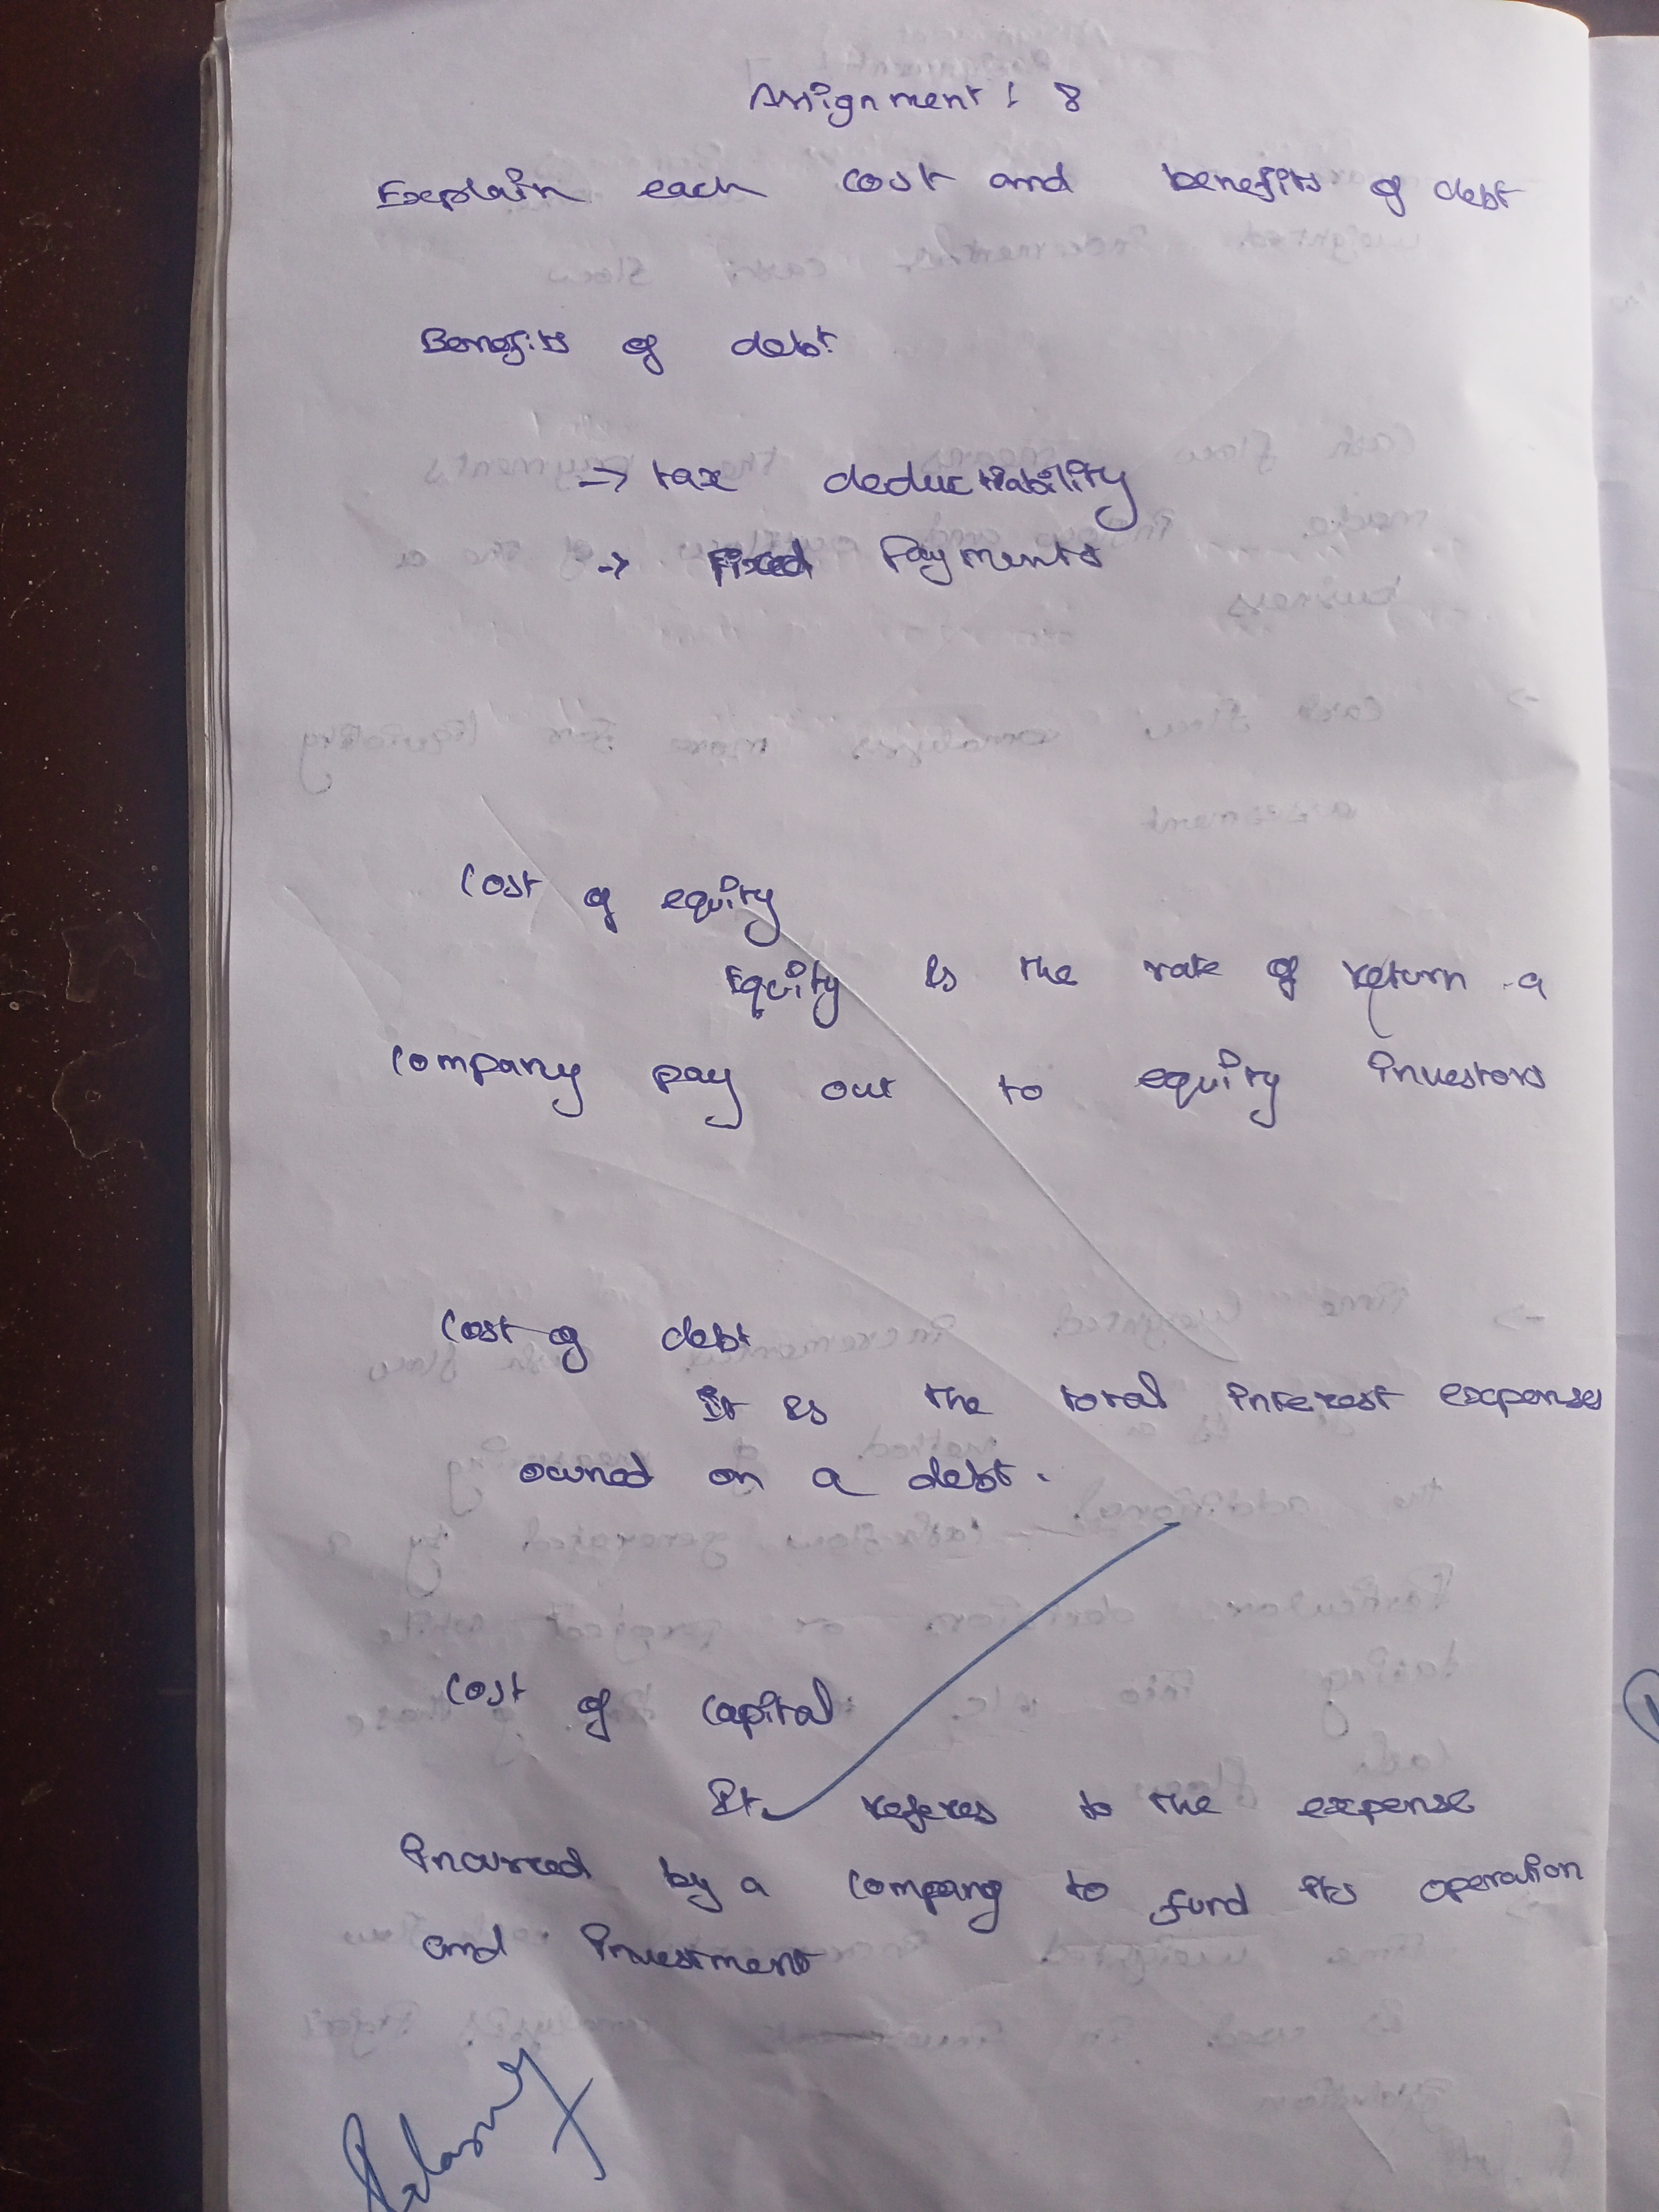 Assignment : 8
Explain each cost and benefits of debt
Benefits of debt
→ tax deductiability
→ Fixed Payments
Cost of equity
Equity is the rate of return a
company pay out to equity investors
Cost of debt
It is the total interest expenses
owned on a debt.
Cost of capital:
It referes to the expense
incurred by a company to fund its operation
and investment